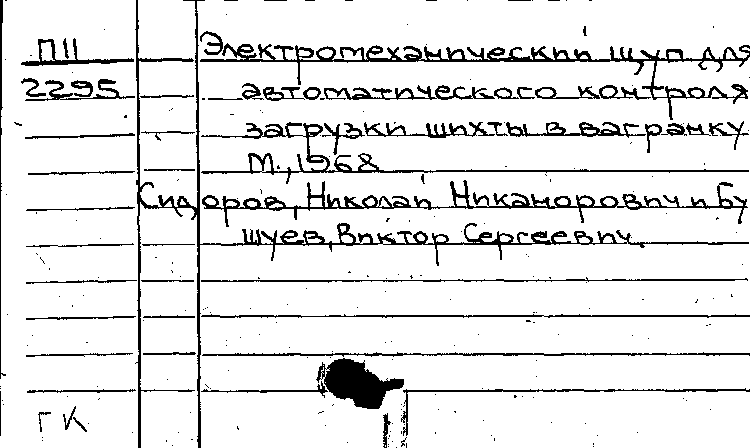 П11
2295
Электромеханический щуп для
автоматического контроля
загрузки шихты в вагранку
М., 1968
Сидоров, Николай Никанорович и Бу
шуев, Виктор Сергеевич.
ГК